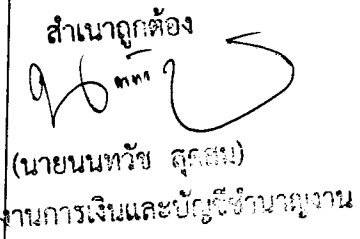 สำเนาถูกต้อง
(นายนนทวัช
งานการเงินและบัญชีชำนาญงาน